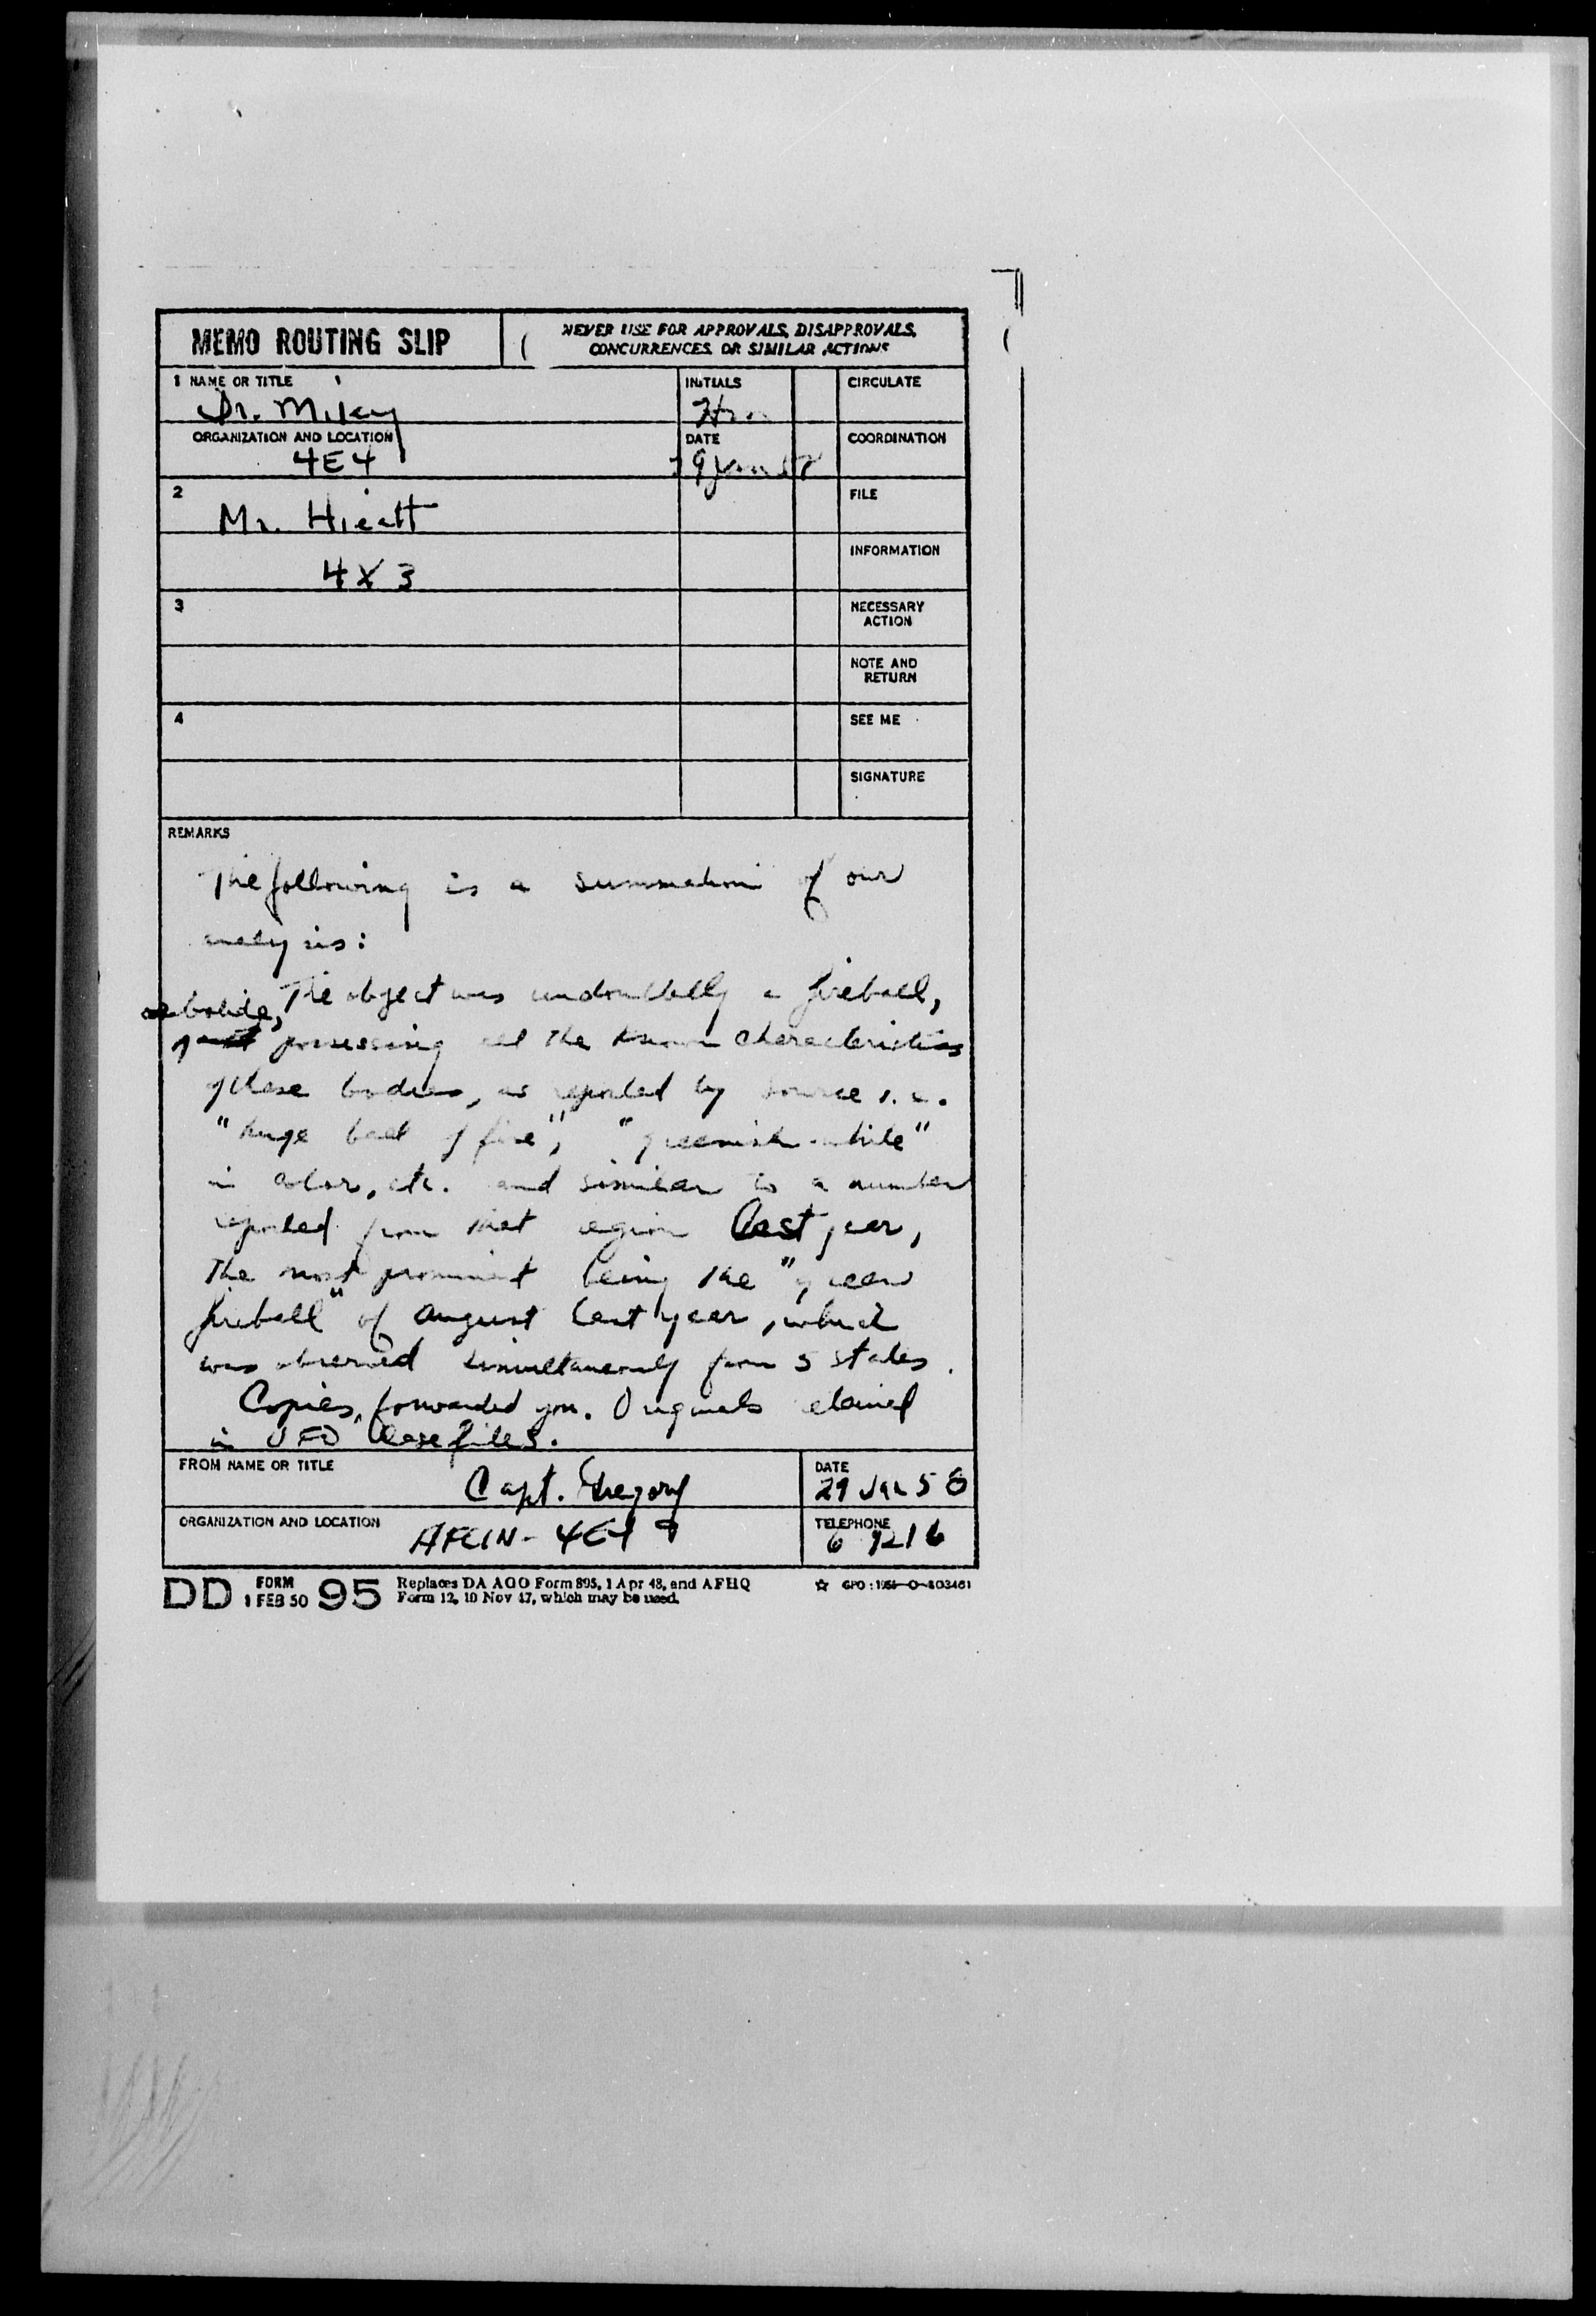 MEMO ROUTING SLIP
NEVER USE FOR APPROVALS, DISAPPROVALS,
CONCURRENCES, OR SIMILAR ACTIONS
1 NAME OR TITLE
Dr. Miley
INITIALS
CIRCULATE
ORGANIZATION AND LOCATION
4E4
DATE
COORDINATION
2
Mr. Hieatt
FILE
4X3
INFORMATION
3
NECESSARY
ACTION
NOTE AND
RETURN
4
SEE ME
SIGNATURE
REMARKS
The following is a summation of our
analysis:
The object was undoubtedly a fireball,
or bolide,
possessing all the known characteristics
of these bodies, as reported by source i.e.
"huge ball of fire", "greenish-white"
in color, etc. and similar to a number
reported from that region last year,
the most prominent being the "green
fireball" of August last year, which
was observed simultaneously from 5 states.
Copies forwarded you. Originals retained
in UFO case files.
FROM NAME OR TITLE
Capt. Gregory
DATE
29 Jan 58
ORGANIZATION AND LOCATION
AFCIN-4E4
TELEPHONE
6 9216
DD FORM 1 FEB 50 95
Replaces DA AGO Form 895, 1 Apr 48, and AFHQ
Form 12, 10 Nov 47, which may be used.
☆ GPO: